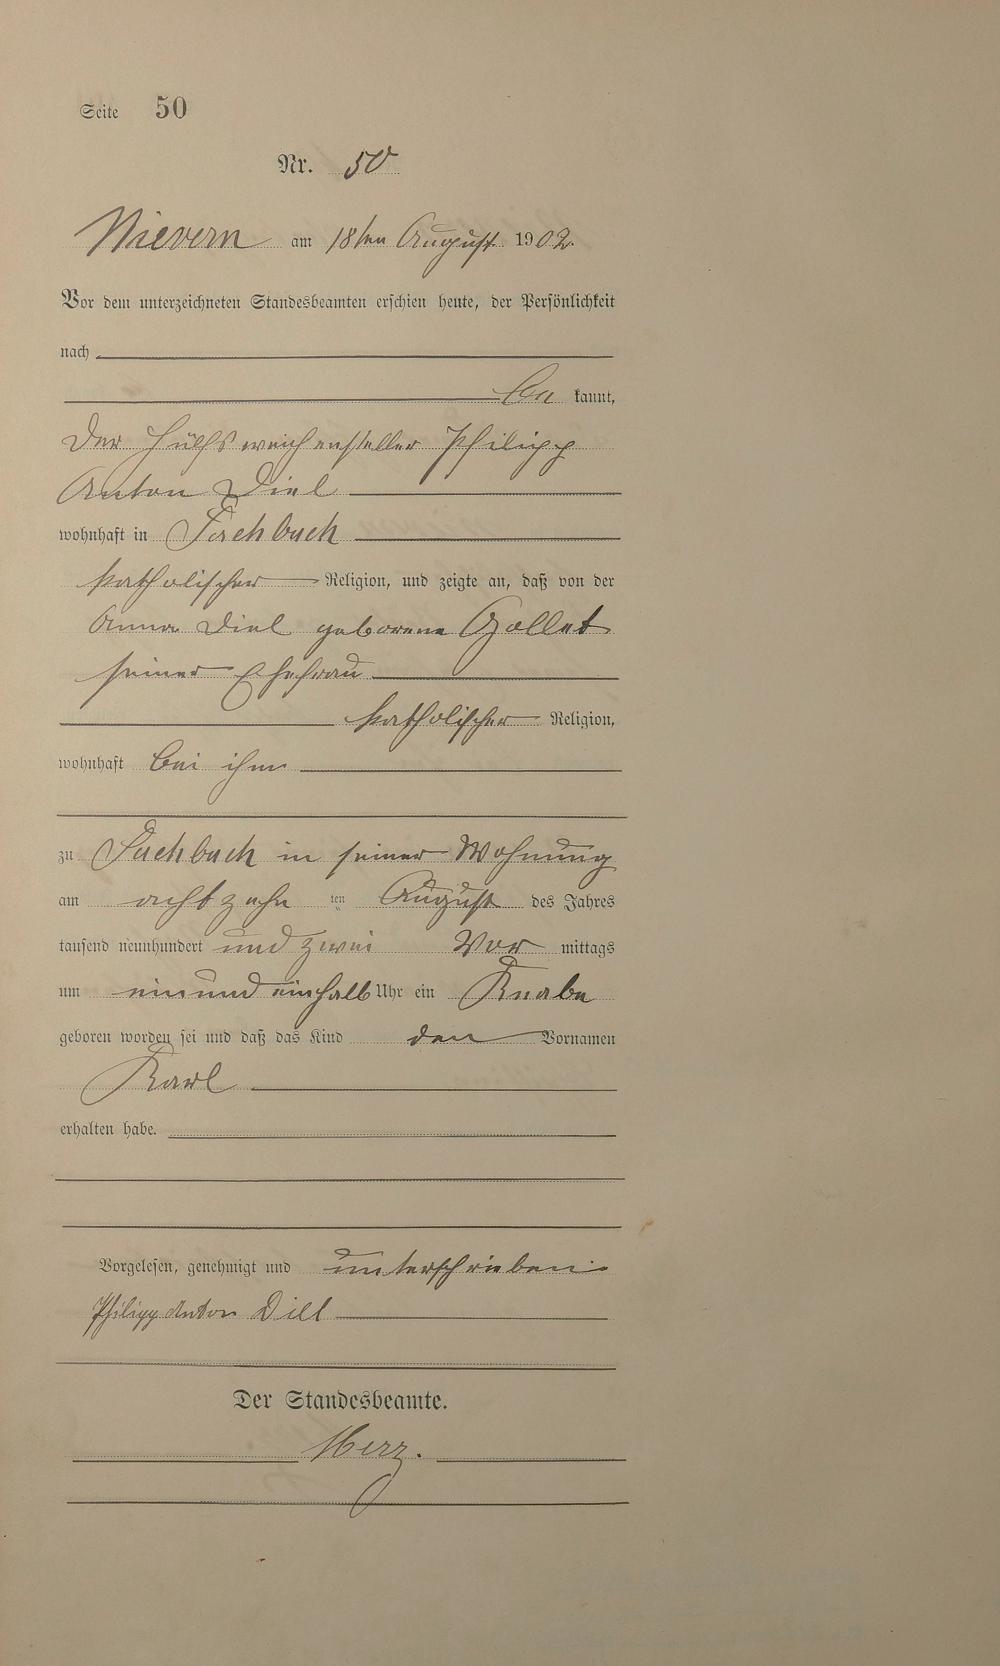 Seite 50
Nr. 50
Nievern am 18ten August 1902.
Vor dem unterzeichneten Standesbeamten erschien heute, der Persönlichkeit
nach
be kannt,
der Hülfsweichensteller Philipp
Anton Diel
wohnhaft in Fachbach
katholischer Religion, und zeigte an, daß von der
Anna Diel geborene Gollet
seiner Ehefrau
katholischer Religion,
wohnhaft bei ihm
zu Fachbach in seiner Wohnung
am achtzehn ten August des Jahres
tausend neunhundert und zwei Vor mittags
um ein und einhalb Uhr ein Knabe
geboren worden sei und daß das Kind den Vornamen
Karl
erhalten habe.
Vorgelesen, genehmigt und unterschrieben.
Philipp Anton Dill
Der Standesbeamte.
Herz.